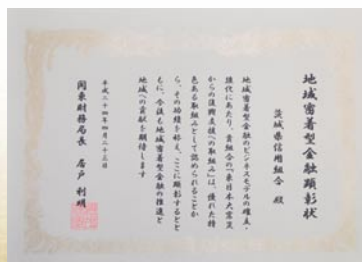 地域密着型金融顕彰状
茨城県信用組合 殿
地域密着型金融のビジネスモデルの確立・
強化にあたり、貴組合の「東日本大震災
からの復興支援への取組み」は、優れた特
色ある取組みとして認められることか
ら、その功績を称え、ここに顕彰するとと
もに、今後も地域密着型金融の推進と
地域への貢献を期待します
平成二十四年四月二十五日
関東財務局長 居戸 利明